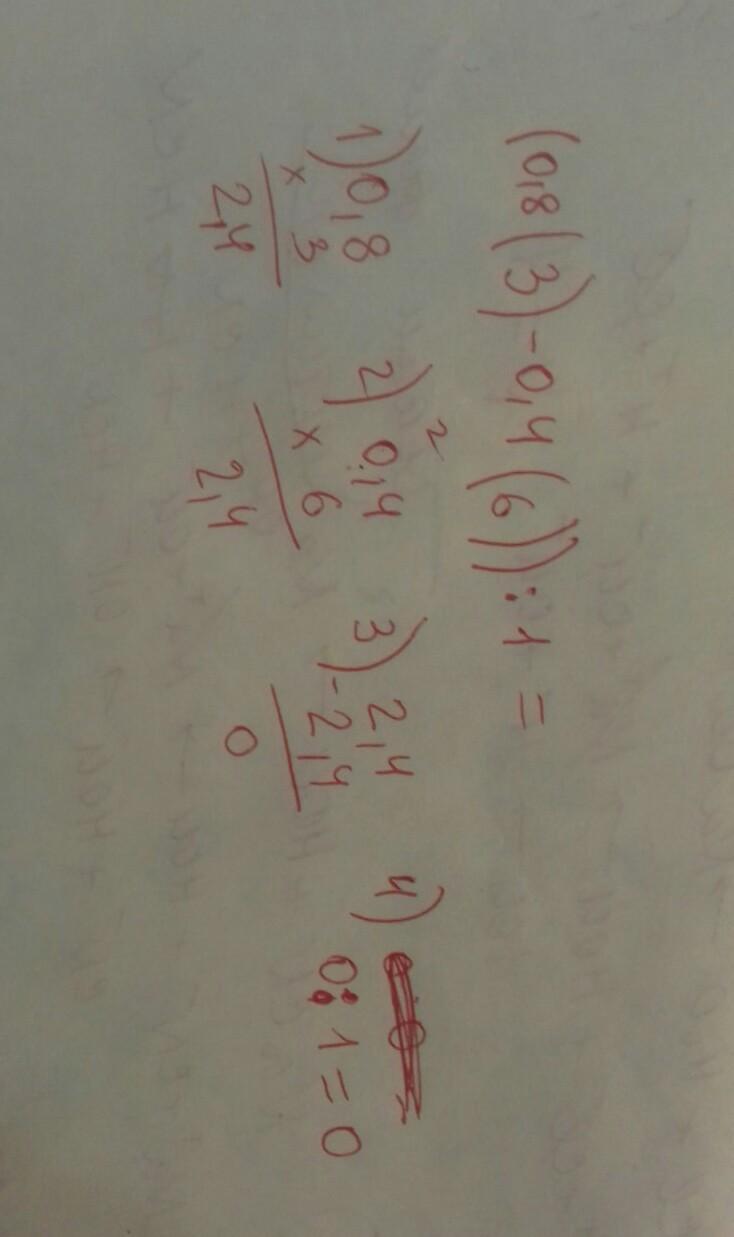 (0,8(3)-0,4(6)):1=
1) 0,8
x 3
2,4
2) 0,4
2
x 6
2,4
3) 2,4
-2,4
0
4)
0:1=0